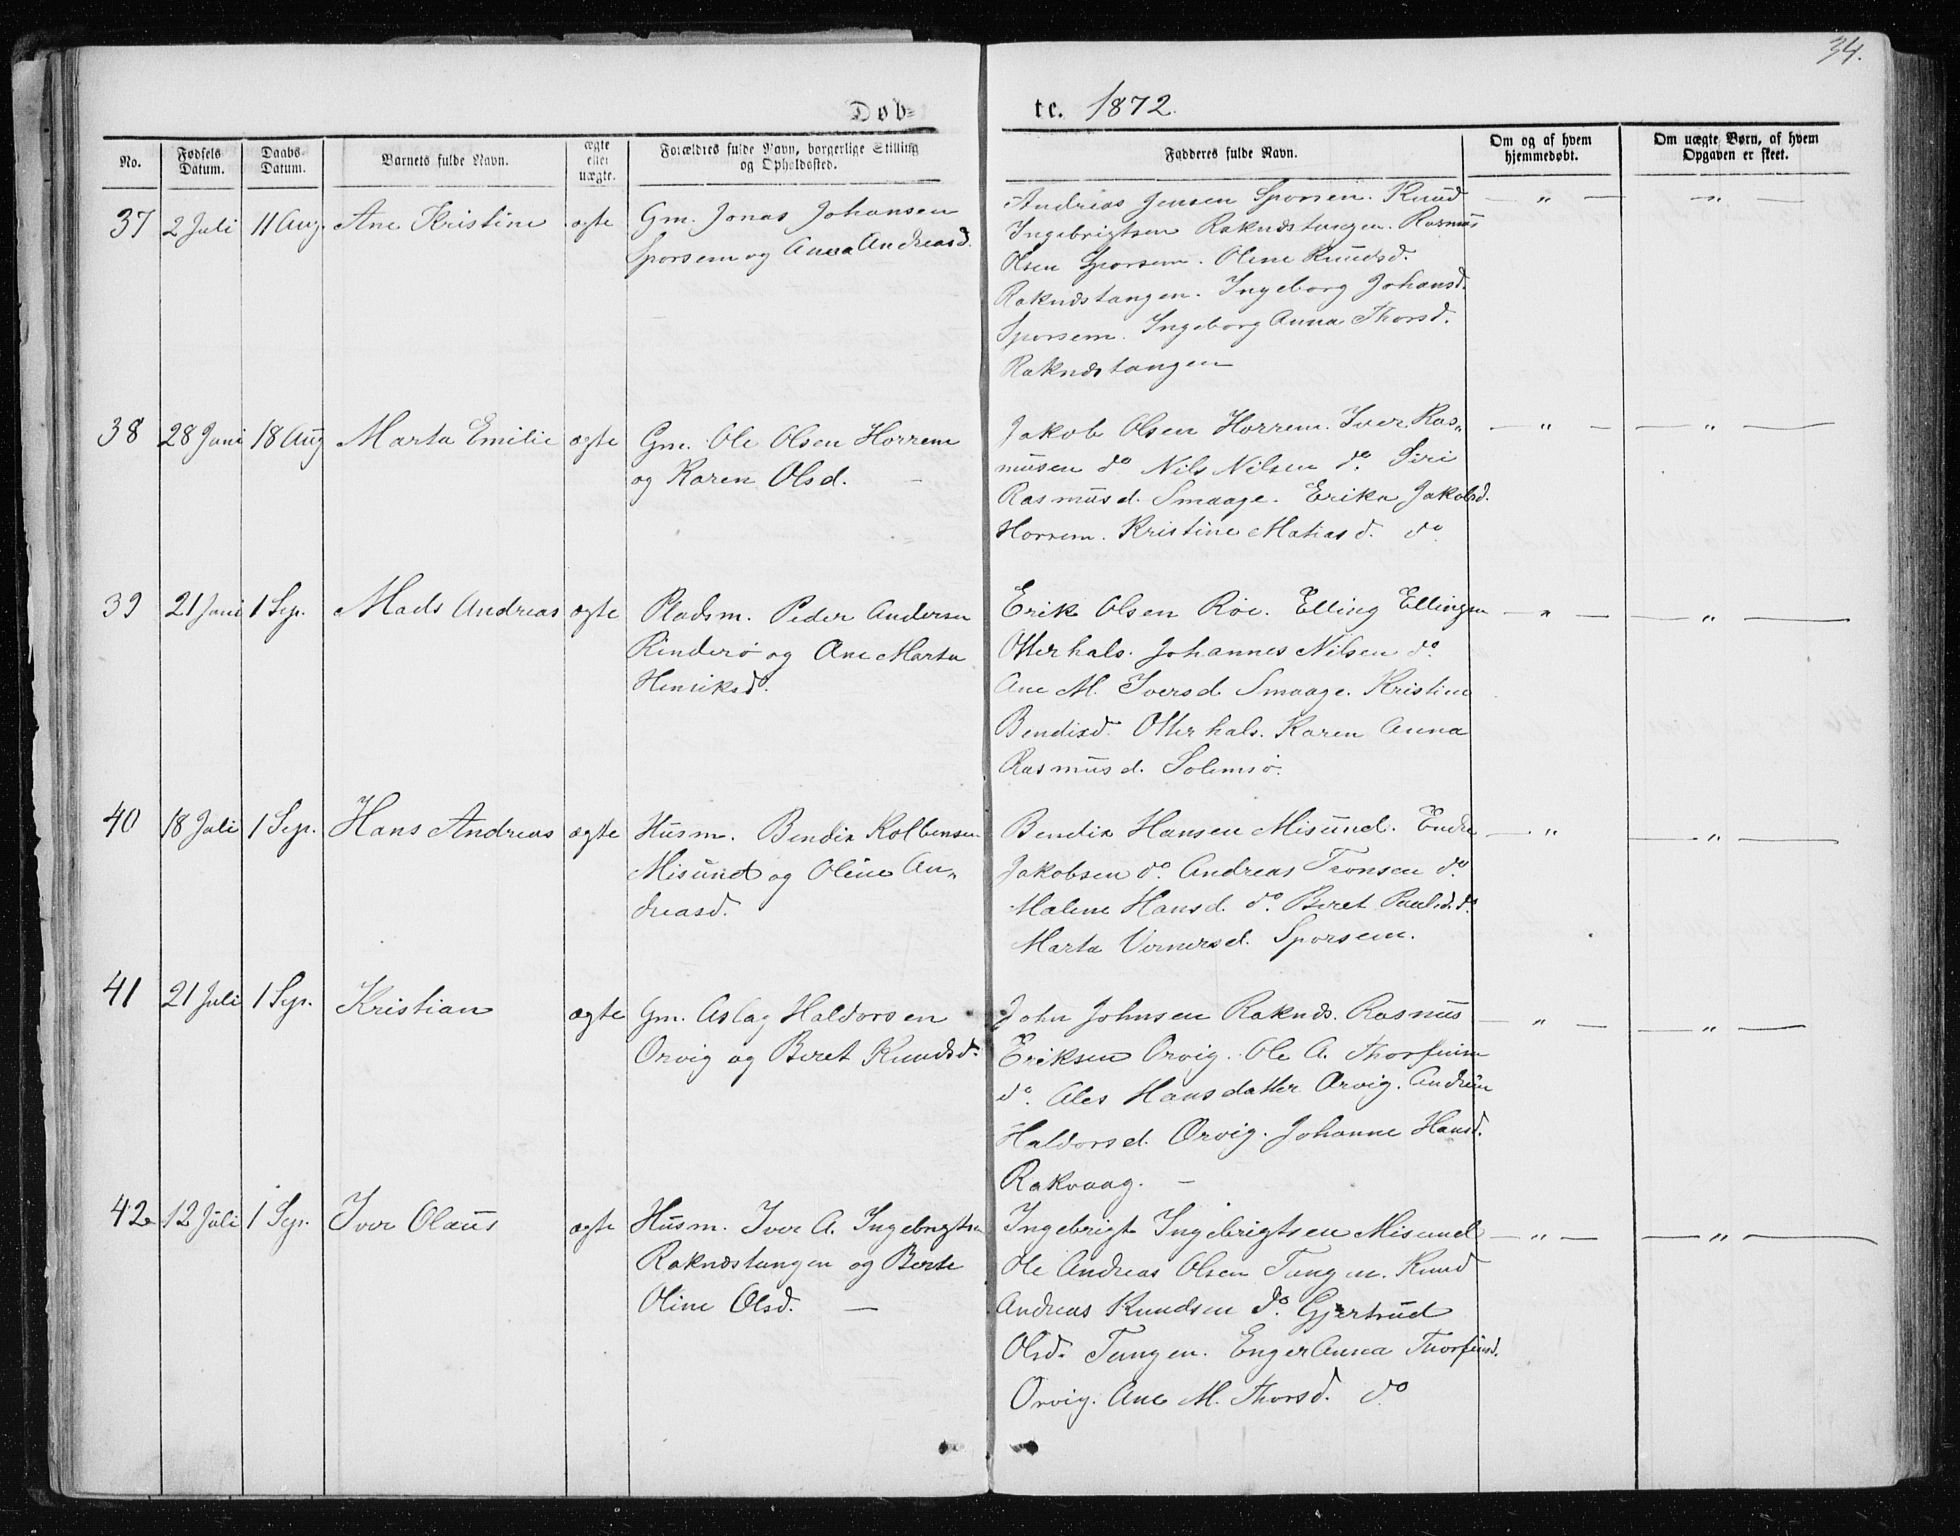 34.
Døbte. 1872.
No. Fødsels Datum. Daabs-Datum. Barnets fulde Navn. ægte eller uægte. Forældres fulde Navn, borgerlige Stilling og Opholdssted. Fadderes fulde Navn. Om og af hvem hjemmedøbt. Om uægte Børn, af hvem Opgaven er skeet.
37 2 Juli 11 Aug. Ane Kristine ægte Gm. Jonas Johansen
Sporsem og Anna Andreasd.
Andreas Jensen Sporsem. Knud — „ — — „ —
Ingebrigtsen Raknæstangen. Rasmus
Olsen Sporsem. Oline Knudsd.
Raknæstangen. Ingeborg Johansd.
Sporsem. Ingeborg Anna Thorsd.
Raknæstangen
38 28 Juni 18 Aug Marta Emilie ægte Gm. Ole Olsen Horrem
og Karen Olsd. —
Jakob Olsen Horrem. Iver Ras„ — „ — — „ —
musen do Nils Nilsen do. Siri
Rasmusd. Smaage. Erika Jakobsd.
Horrem. Kristine Matiasd. do
39 21 Juni 1 Sep. Mads Andreas ægte Pladsm. Peder Andersen
Rinderø og Ane Marta
Henriksd.
Erik Olsen Röe. Elling Ellingsen — „ — — „ —
Otterhals. Johannes Nilsen do.
Ane M. Iversd Smaage. Kristine
Bendixd. Otterhals. Karen Anna
Rasmusd. Solemsö.
40 18 Juli 1 Sep. Hans Andreas ægte Husm. Bendix Kolbensen
Misund og Oline An„
dreasd.
Bendix Hansen Misund. Endre — „ — „ —
Jakobsen do. Andreas Tronsen do.
Malene Hansd. do. Beret Paulsd. do.
Marta Vernersd. Sporsem.
41 21 Juli 1 Sep. Kristian ægte Gm. Aslag Haldorsen
Orvig og Beret Knudsd.
John Johnsen Raknæs. Rasmus — „ — — „ —
Eriksen Orvig. Ole A. Thorfinsen
do. Ales Hansdatter Orvig. Andrine
Haldorsd. Orvig. Johanne Hansd.
Rakvaag. —
42 12 Juli 1 Sep. Iver Olaus ægte Husm. Iver A. Ingebrigtsen
Raknæstangen og Berte
Oline Olsd. —
Ingebrigt Ingebrigtsen Misund — „ — — „ —
Ole Andreas Olsen Tangen. Knud
Andreas Knudsen do. Gjertrud
Olsd. Tangen. Enger Anna Thorfinsd.
Orvig. Ane M. Thorsd. do